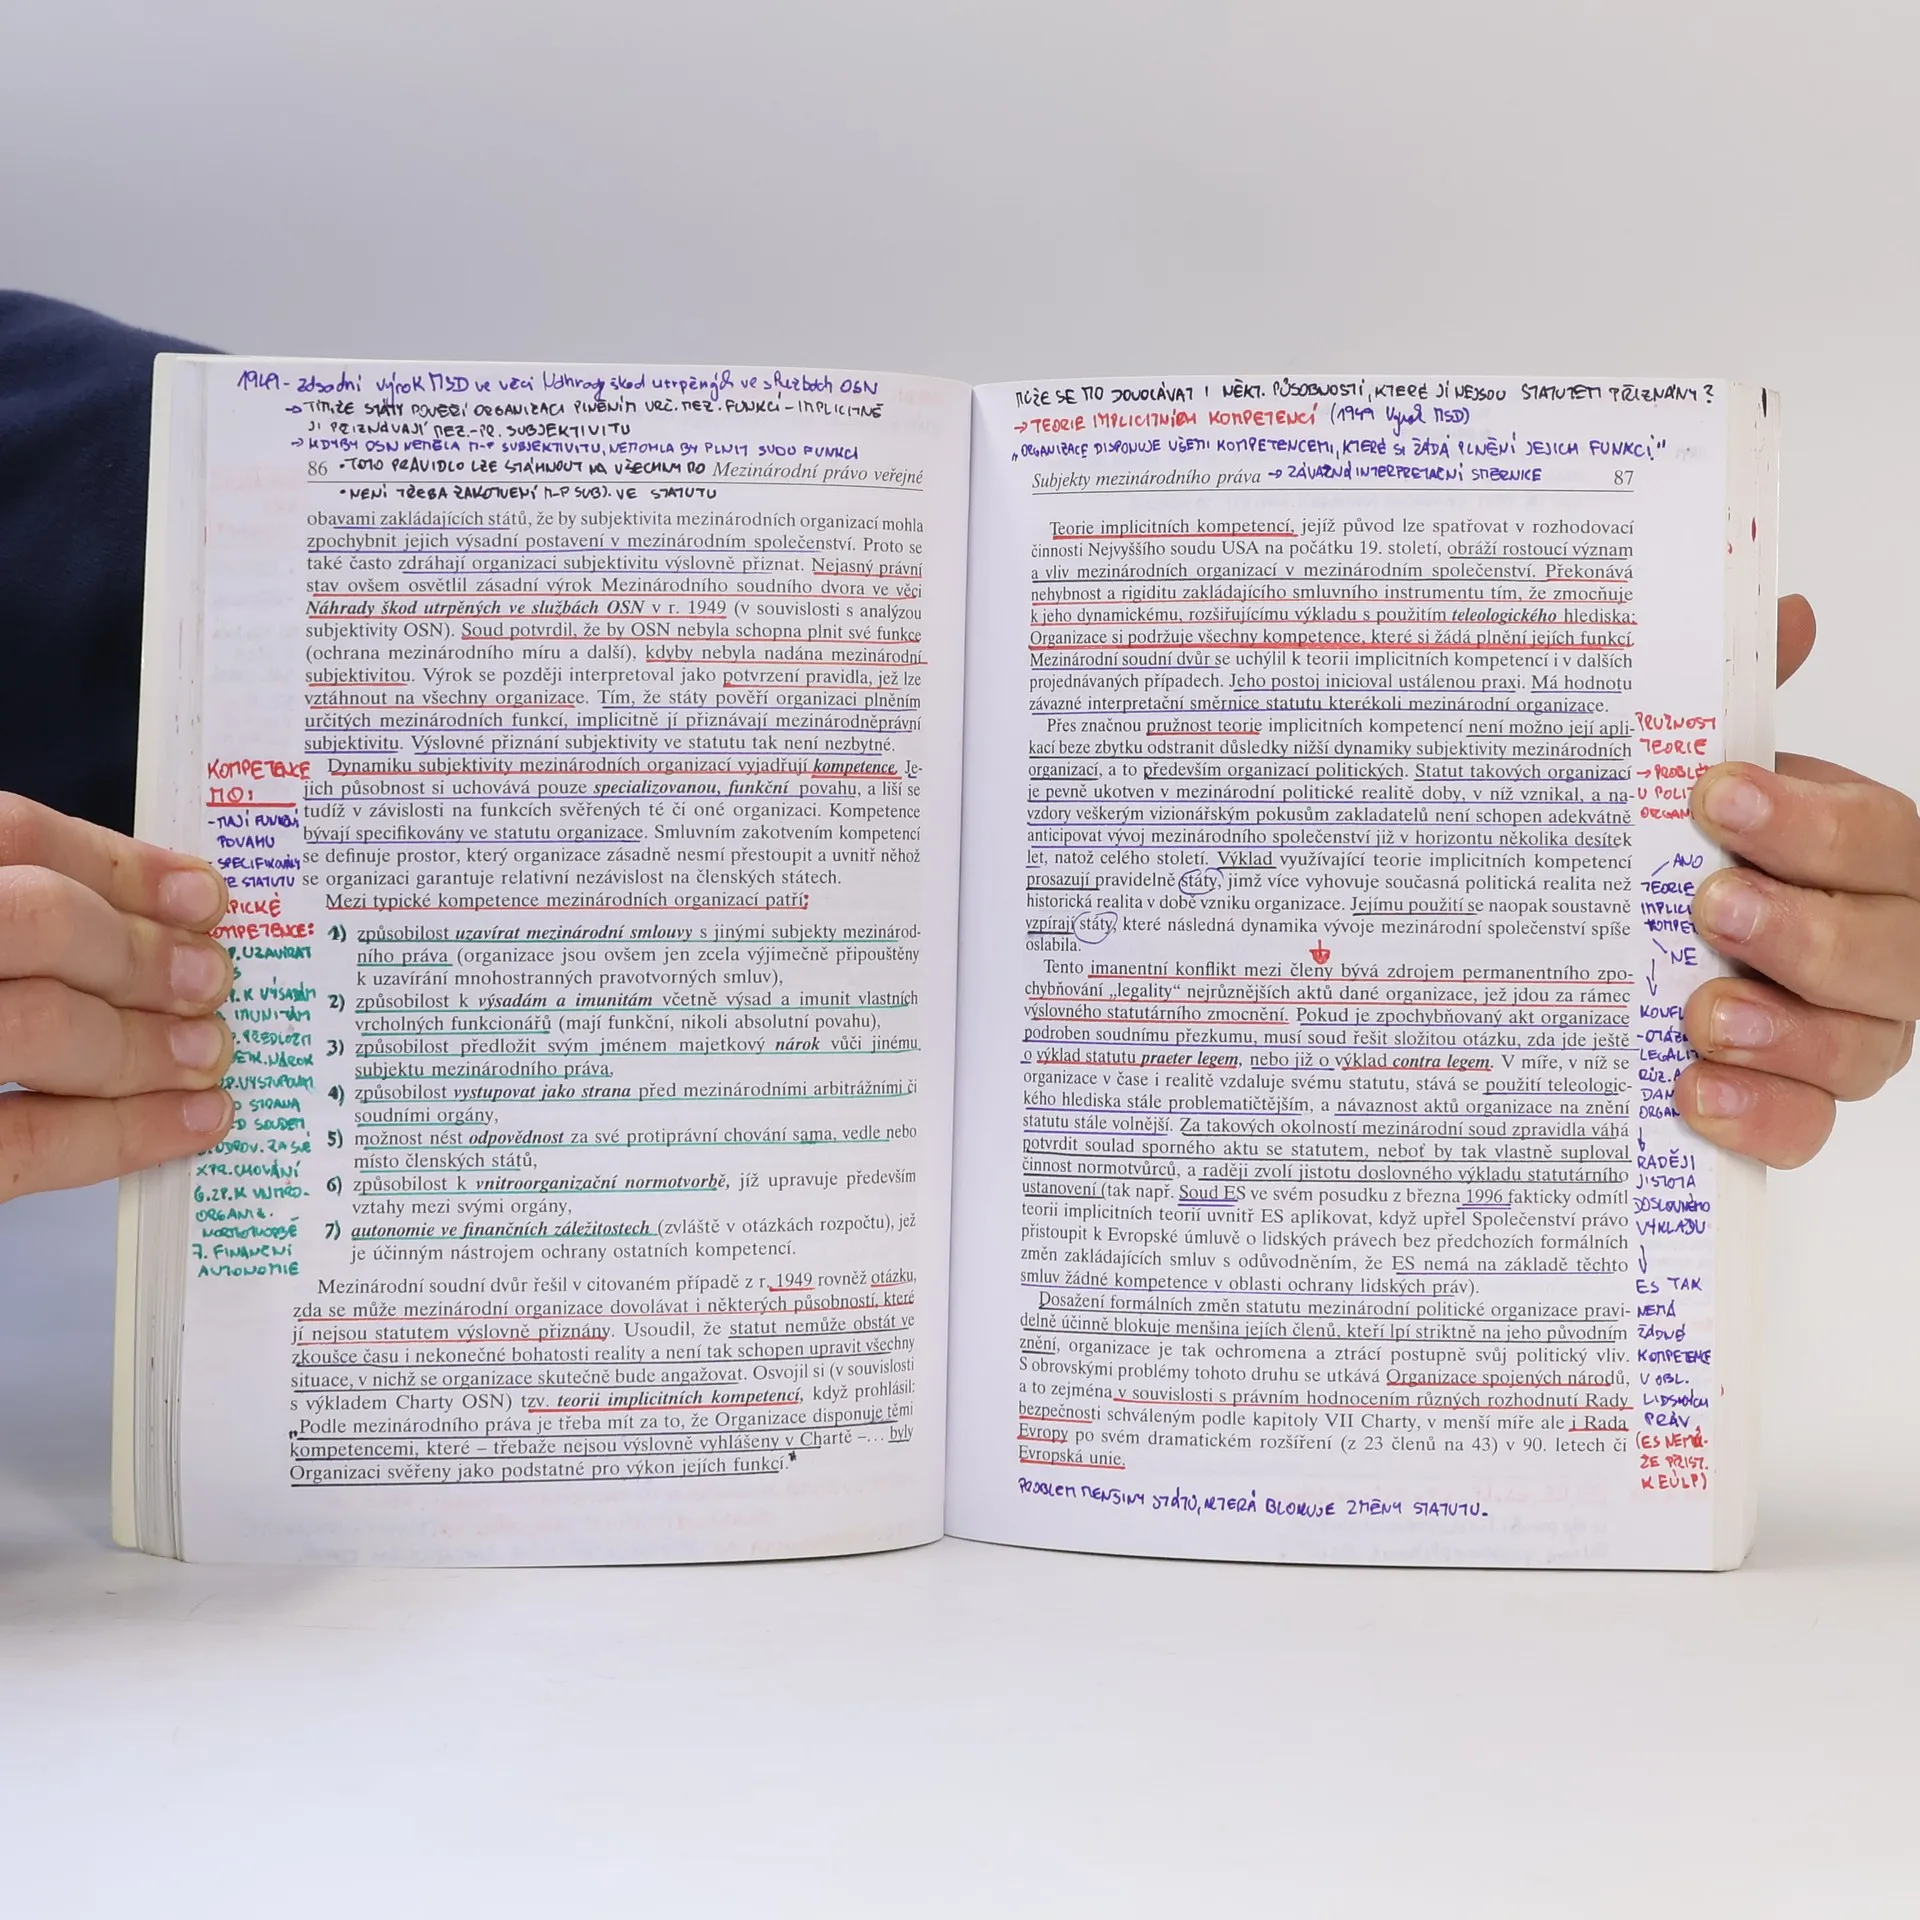 1949 - zásadní výrok MSD ve věci Náhrady škod utrpěných ve službách OSN
→ TÍM, ŽE STÁTY POVĚŘÍ ORGANIZACI PLNĚNÍM URČ. MEZ. FUNKCÍ - IMPLICITNĚ
JÍ PŘIZNÁVAJÍ MEZ.-PR. SUBJEKTIVITU
→ KDYBY OSN NEMĚLA M-P SUBJEKTIVITU, NEMOHLA BY PLNIT SVOU FUNKCI
86 • TOTO PRAVIDLO LZE STÁHNOUT NA VŠECHNY MO Mezinárodní právo veřejné
• NENÍ TŘEBA ZAKOTVENÍ M-P SUBJ. VE STATUTU
obavami zakládajících států, že by subjektivita mezinárodních organizací mohla
zpochybnit jejich výsadní postavení v mezinárodním společenství. Proto se
také často zdráhají organizaci subjektivitu výslovně přiznat. Nejasný právní
stav ovšem osvětlil zásadní výrok Mezinárodního soudního dvora ve věci
Náhrady škod utrpěných ve službách OSN v r. 1949 (v souvislosti s analýzou
subjektivity OSN). Soud potvrdil, že by OSN nebyla schopna plnit své funkce
(ochrana mezinárodního míru a další), kdyby nebyla nadána mezinárodní
subjektivitou. Výrok se později interpretoval jako potvrzení pravidla, jež lze
vztáhnout na všechny organizace. Tím, že státy pověří organizaci plněním
určitých mezinárodních funkcí, implicitně jí přiznávají mezinárodněprávní
subjektivitu. Výslovné přiznání subjektivity ve statutu tak není nezbytné.
Dynamiku subjektivity mezinárodních organizací vyjadřují kompetence. Je-
jich působnost si uchovává pouze specializovanou, funkční povahu, a liší se
tudíž v závislosti na funkcích svěřených té či oné organizaci. Kompetence
bývají specifikovány ve statutu organizace. Smluvním zakotvením kompetencí
se definuje prostor, který organizace zásadně nesmí přestoupit a uvnitř něhož
se organizaci garantuje relativní nezávislost na členských státech.
Mezi typické kompetence mezinárodních organizací patří:
1) způsobilost uzavírat mezinárodní smlouvy s jinými subjekty mezinárod-
ního práva (organizace jsou ovšem jen zcela výjimečně připouštěny
k uzavírání mnohostranných pravotvorných smluv),
2) způsobilost k výsadám a imunitám včetně výsad a imunit vlastních
vrcholných funkcionářů (mají funkční, nikoli absolutní povahu),
3) způsobilost předložit svým jménem majetkový nárok vůči jinému
subjektu mezinárodního práva,
4) způsobilost vystupovat jako strana před mezinárodními arbitrážními či
soudními orgány,
5) možnost nést odpovědnost za své protiprávní chování sama, vedle nebo
místo členských států,
6) způsobilost k vnitroorganizační normotvorbě, jíž upravuje především
vztahy mezi svými orgány,
7) autonomie ve finančních záležitostech (zvláště v otázkách rozpočtu), jež
je účinným nástrojem ochrany ostatních kompetencí.
Mezinárodní soudní dvůr řešil v citovaném případě z r. 1949 rovněž otázku,
zda se může mezinárodní organizace dovolávat i některých působností, které
jí nejsou statutem výslovně přiznány. Usoudil, že statut nemůže obstát ve
zkoušce času i nekonečné bohatosti reality a není tak schopen upravit všechny
situace, v nichž se organizace skutečně bude angažovat. Osvojil si (v souvislosti
s výkladem Charty OSN) tzv. teorii implicitních kompetencí, když prohlásil:
„Podle mezinárodního práva je třeba mít za to, že Organizace disponuje těmi
kompetencemi, které – třebaže nejsou výslovně vyhlášeny v Chartě –... byly
Organizaci svěřeny jako podstatné pro výkon jejích funkcí."
KOMPETENCE
MO:
- MAJÍ FUNKČNÍ
POVAHU
- SPECIFIKOVÁNY
VE STATUTU
KOMPETENCE:
UZAVÍRAT
K VÝSADÁM
IMUNITÁM
PŘEDLOŽIT
NÁROK
VYSTUPOVAT
STRANA
SOUDEM
ODPOV. ZA SVÉ
CHOVÁNÍ
6. ZP. K VNITRO-
ORGANIZ.
NORMOTVORBĚ
7. FINANČNÍ
AUTONOMIE
MŮŽE SE MO DOVOLÁVAT I NĚKT. PŮSOBNOSTÍ, KTERÉ JÍ NEJSOU STATUTEM PŘIZNÁNY?
→ TEORIE IMPLICITNÍCH KOMPETENCÍ (1949 výrok MSD)
„ORGANIZACE DISPONUJE VŠEMI KOMPETENCEMI, KTERÉ SI ŽÁDÁ PLNĚNÍ JEJICH FUNKCÍ"
Subjekty mezinárodního práva → ZÁVAZNÁ INTERPRETAČNÍ SMĚRNICE 87
Teorie implicitních kompetencí, jejíž původ lze spatřovat v rozhodovací
činnosti Nejvyššího soudu USA na počátku 19. století, obráží rostoucí význam
a vliv mezinárodních organizací v mezinárodním společenství. Překonává
nehybnost a rigiditu zakládajícího smluvního instrumentu tím, že zmocňuje
k jeho dynamickému, rozšiřujícímu výkladu s použitím teleologického hlediska:
Organizace si podržuje všechny kompetence, které si žádá plnění jejích funkcí.
Mezinárodní soudní dvůr se uchýlil k teorii implicitních kompetencí i v dalších
projednávaných případech. Jeho postoj inicioval ustálenou praxi. Má hodnotu
závazné interpretační směrnice statutu kterékoli mezinárodní organizace.
Přes značnou pružnost teorie implicitních kompetencí není možno její apli-
kací beze zbytku odstranit důsledky nižší dynamiky subjektivity mezinárodních
organizací, a to především organizací politických. Statut takových organizací
je pevně ukotven v mezinárodní politické realitě doby, v níž vznikal, a na-
vzdory veškerým vizionářským pokusům zakladatelů není schopen adekvátně
anticipovat vývoj mezinárodního společenství již v horizontu několika desítek
let, natož celého století. Výklad využívající teorie implicitních kompetencí
prosazují pravidelně státy, jimž více vyhovuje současná politická realita než
historická realita v době vzniku organizace. Jejímu použití se naopak soustavně
vzpírají státy, které následná dynamika vývoje mezinárodní společenství spíše
oslabila.
Tento imanentní konflikt mezi členy bývá zdrojem permanentního zpo-
chybňování „legality“ nejrůznějších aktů dané organizace, jež jdou za rámec
výslovného statutárního zmocnění. Pokud je zpochybňovaný akt organizace
podroben soudnímu přezkumu, musí soud řešit složitou otázku, zda jde ještě
o výklad statutu praeter legem, nebo již o výklad contra legem. V míře, v níž se
organizace v čase i realitě vzdaluje svému statutu, stává se použití teleologic-
kého hlediska stále problematičtějším, a návaznost aktů organizace na znění
statutu stále volnější. Za takových okolností mezinárodní soud zpravidla váhá
potvrdit soulad sporného aktu se statutem, neboť by tak vlastně suploval
činnost normotvůrců, a raději zvolí jistotu doslovného výkladu statutárního
ustanovení (tak např. Soud ES ve svém posudku z března 1996 fakticky odmítl
teorii implicitních teorií uvnitř ES aplikovat, když upřel Společenství právo
přistoupit k Evropské úmluvě o lidských právech bez předchozích formálních
změn zakládajících smluv s odůvodněním, že ES nemá na základě těchto
smluv žádné kompetence v oblasti ochrany lidských práv).
Dosažení formálních změn statutu mezinárodní politické organizace pravi-
delně účinně blokuje menšina jejích členů, kteří lpí striktně na jeho původním
znění, organizace je tak ochromena a ztrácí postupně svůj politický vliv.
S obrovskými problémy tohoto druhu se utkává Organizace spojených národů,
a to zejména v souvislosti s právním hodnocením různých rozhodnutí Rady
bezpečnosti schváleným podle kapitoly VII Charty, v menší míře ale i Rada
Evropy po svém dramatickém rozšíření (z 23 členů na 43) v 90. letech či
Evropská unie.
PROBLÉM MENŠINY STÁTŮ, KTERÁ BLOKUJE ZMĚNY STATUTU.
PRUŽNOST
TEORIE
→ PROBLÉ
U POLIT
ORGAN
ANO
TEORIE
IMPLICI
KOMPET
NE
KONFL
- OTÁZ
LEGALIT
RŮZ. A
DAN
ORGAN
RADĚJI
JISTOTA
DOSLOVNÉHO
VÝKLADU
ES TAK
NEMÁ
ŽÁDNÉ
KOMPETENCE
V OBL.
LIDSKÝCH
PRÁV
(ES NEMŮ-
ŽE PŘIST.
K EÚLP)